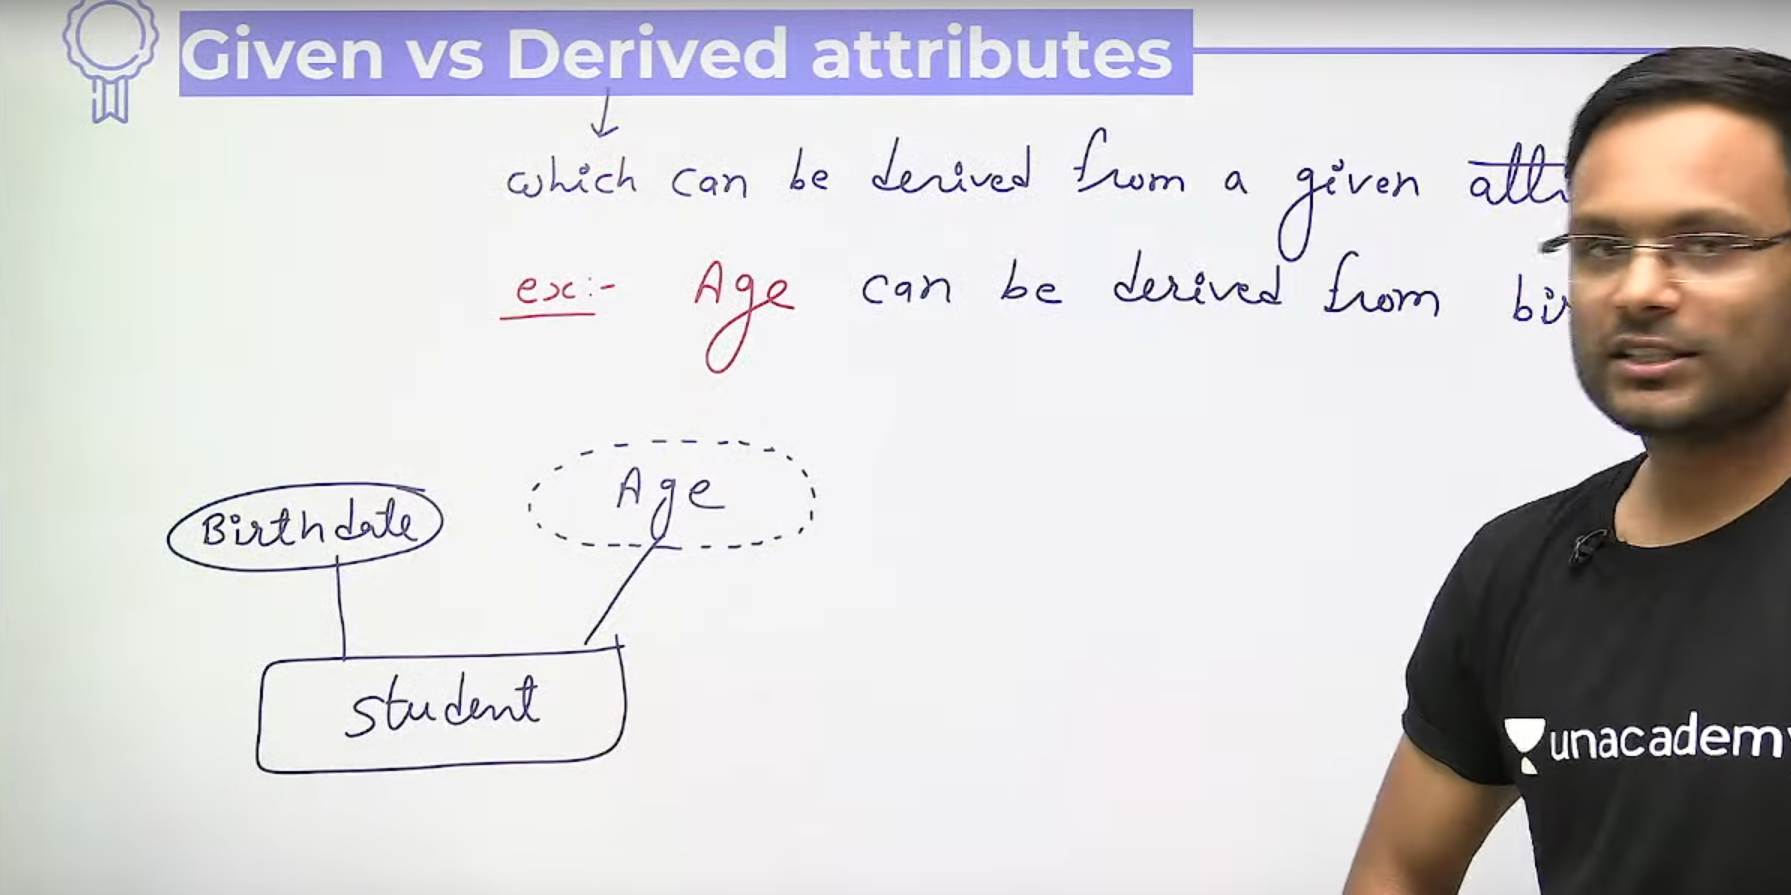 Given vs Derived attributes
which can be derived from a given
ex:- Age can be derived from
Age
Birthdate
student
unacademy